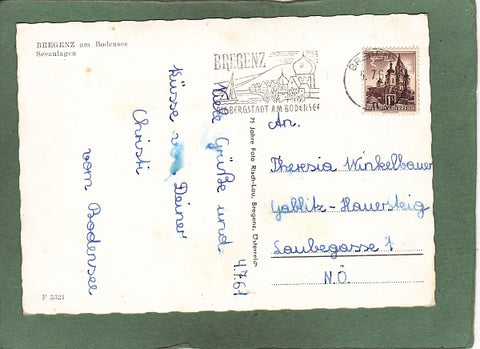 BREGENZ am Bodensee
Seeanlagen
BREGENZ
BERGSTADT AM BODENSEE
75 Jahre Foto Risch-Lau, Bregenz, Österreich
4.7.61
Viele Grüße und
Küsse v Deiner
Christi
vom Bodensee
An.
Theresia Winkelbauer
Gablitz - Hauersteig
Laubegasse 1
N.Ö.
F 5321